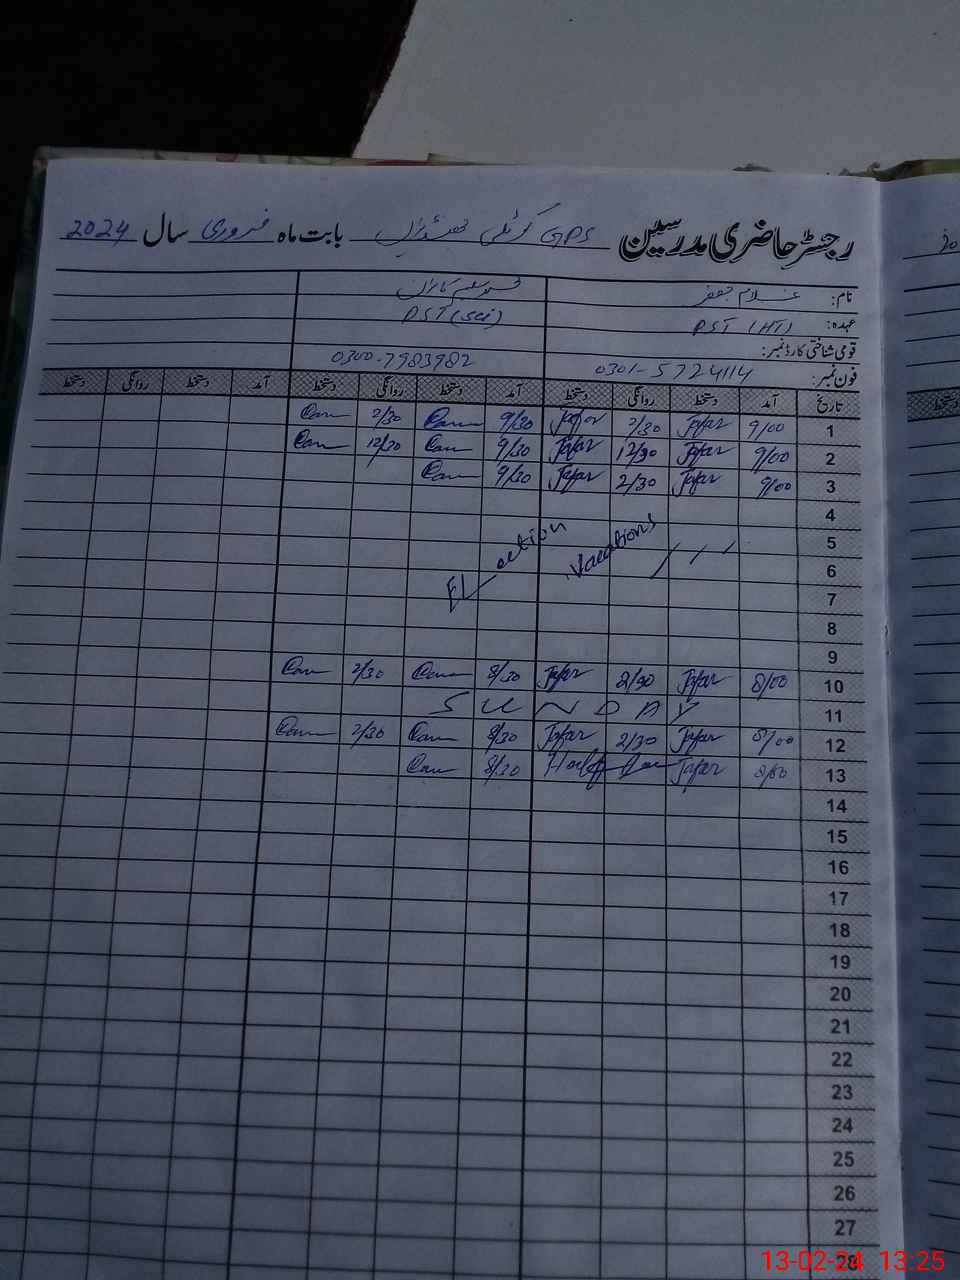 رجسٹر حاضری مدرسین GPS کوٹلی بابت ماہ فروری سال 2024
نام: غلام جعفر
عہدہ: PST (HT) PST (sci)
قومی شناختی کارڈ نمبر:
فون نمبر: 0301-5724114 0300-7983982
تاریخ آمد دستخط روانگی دستخط آمد دستخط روانگی دستخط آمد دستخط روانگی دستخط
1 9/00 Jafar 2/30 Jafar 9/30 2/30
2 9/00 Jafar 12/30 Jafar 9/30 12/30
3 9/00 Jafar 2/30 Jafar 9/30
4
5 Election Vacations
6
7
8
9
10 8/00 Jafar 2/30 Jafar 8/30 2/30
11 SUNDAY
12 8/00 Jafar 2/30 Jafar 8/30 2/30
13 8/00 Jafar Half 8/30
14
15
16
17
18
19
20
21
22
23
24
25
26
27
28
13-02-24 13:25